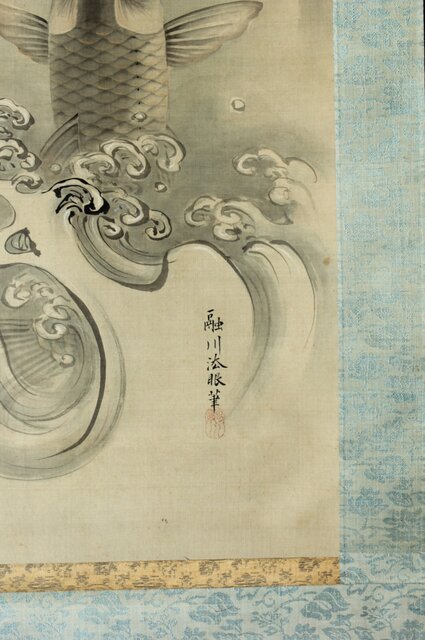 融川法眼筆